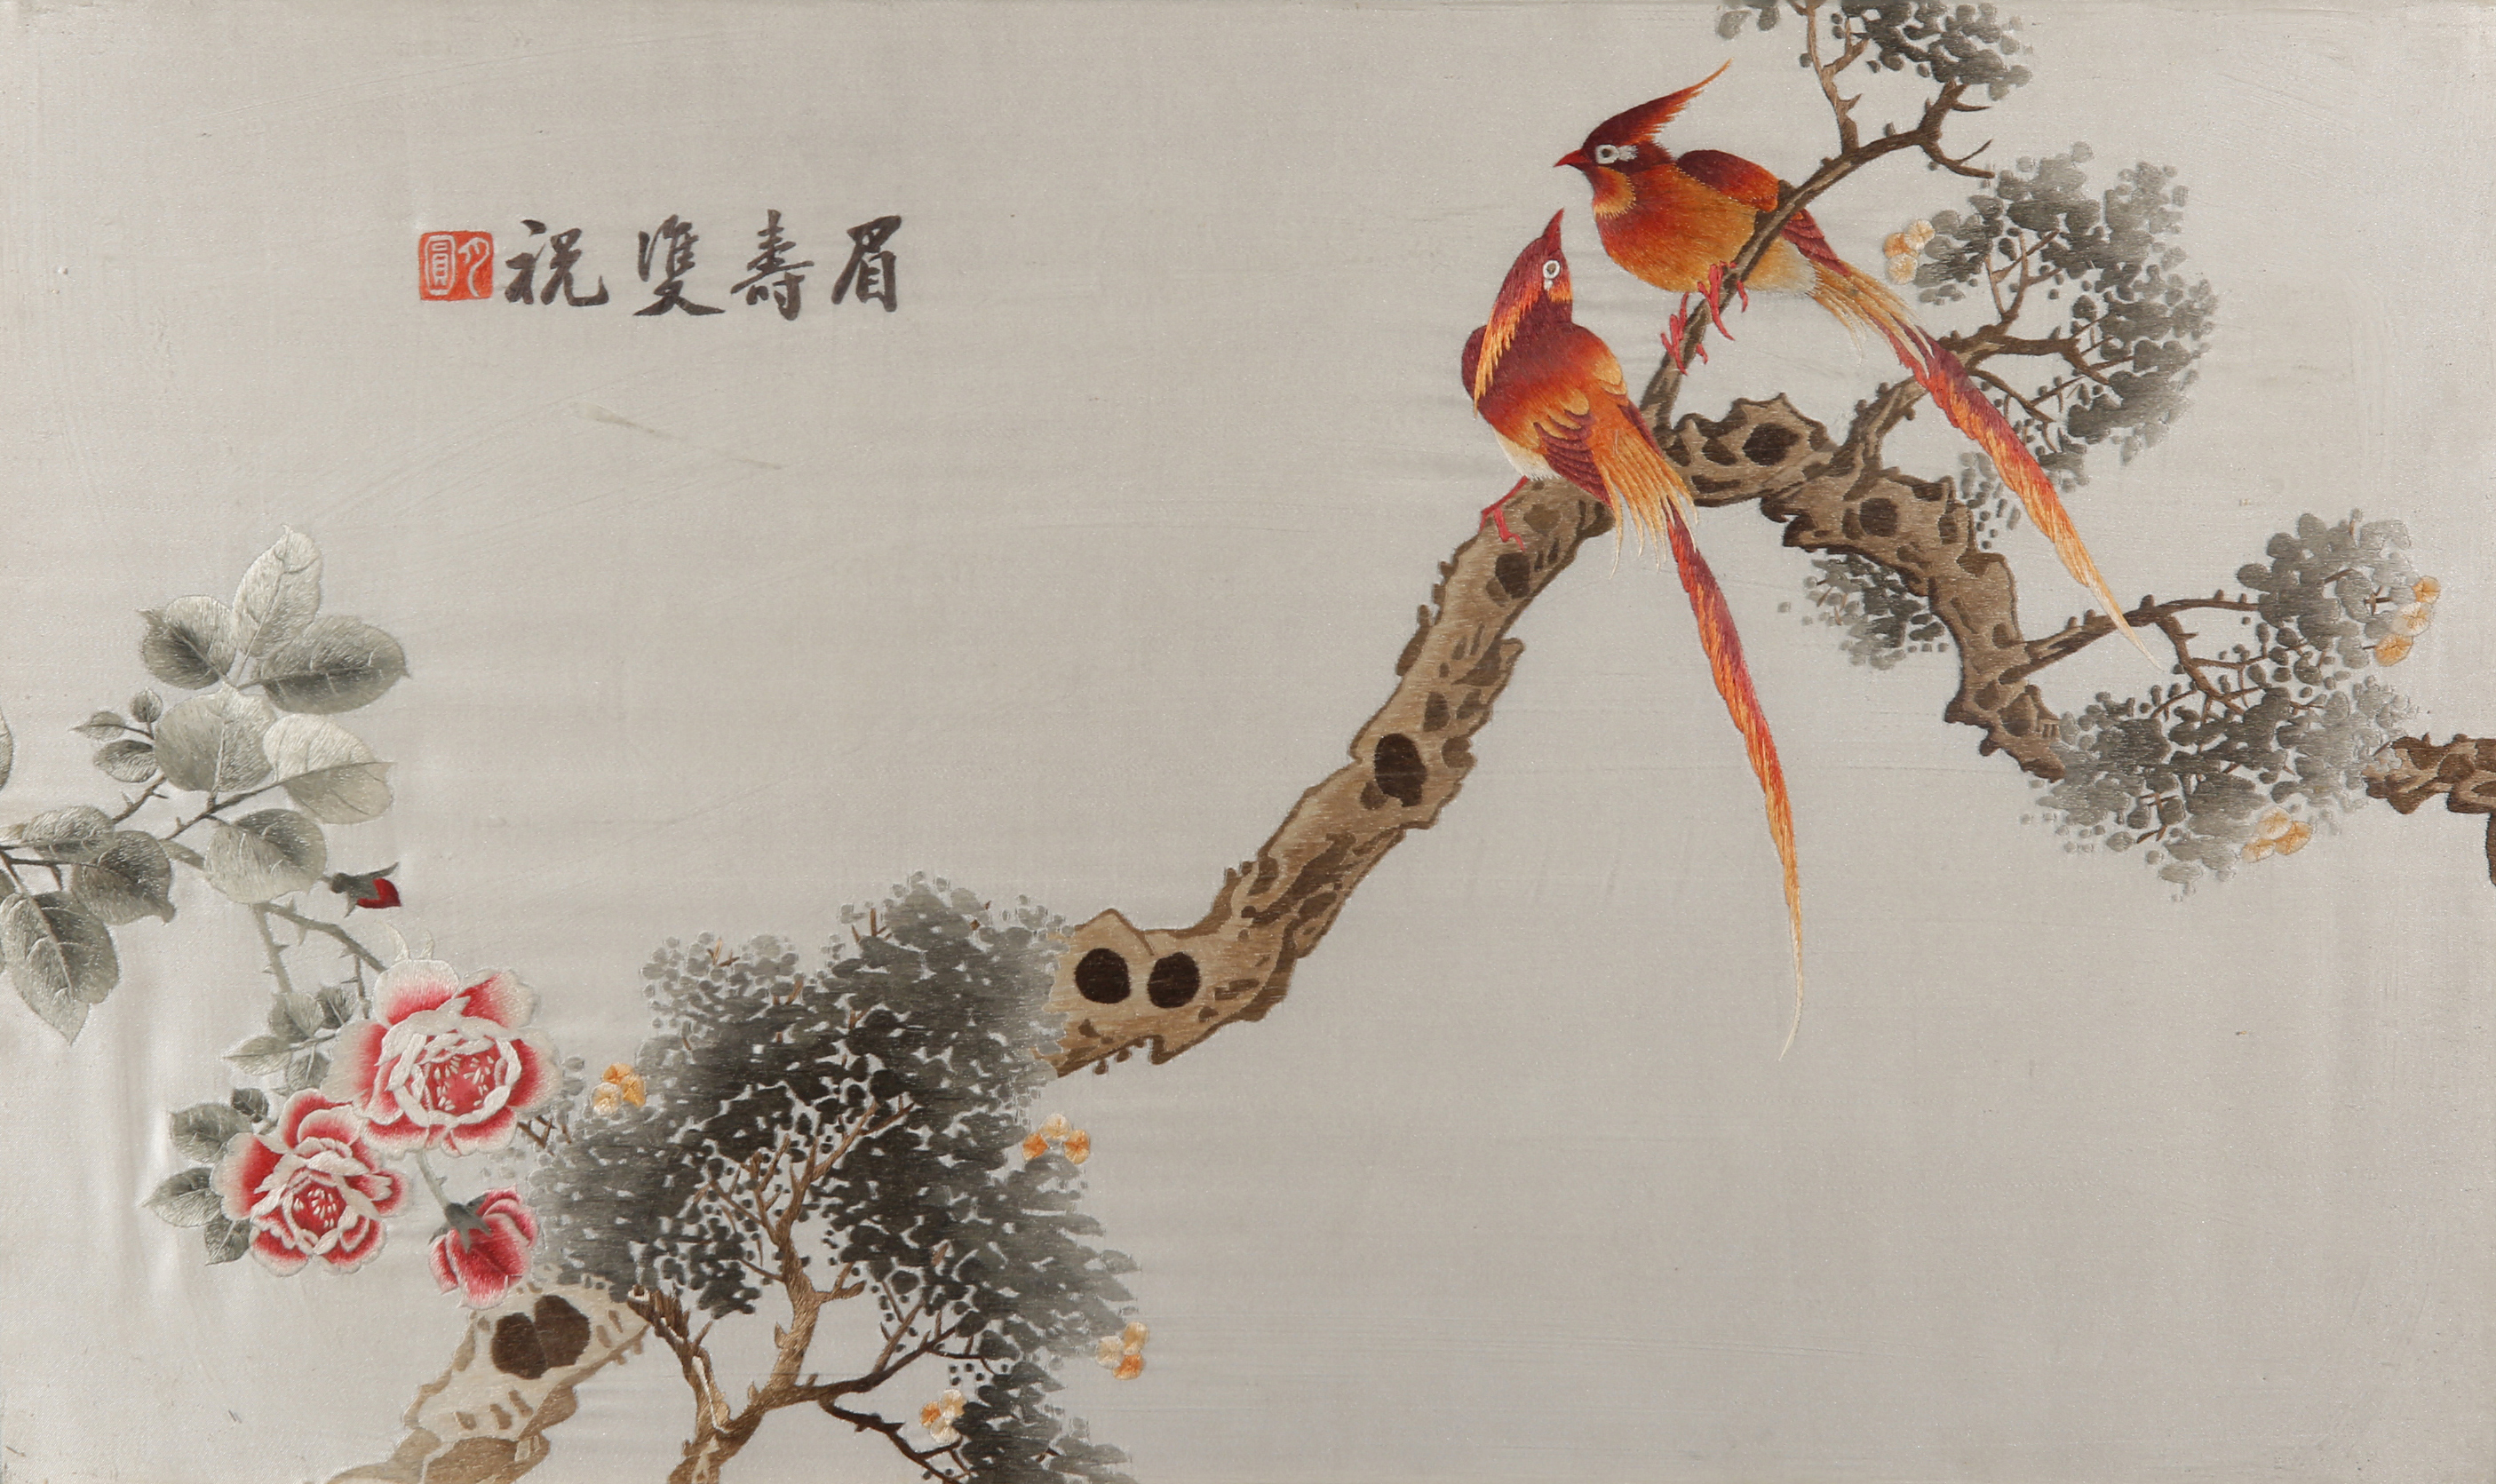 眉壽雙祝